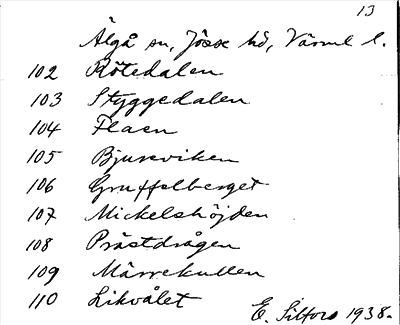 13
Älgå sn, Jösse hd, Värml l.
102 Rötedalen
103 Styggedalen
104 Flaen
105 Bjurviken
106 Gruffelberget
107 Mickelshöjden
108 Prästdrågen
109 Märrekullen
110 Likvålet
E. Silfors 1938.